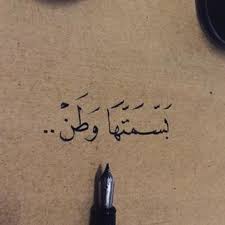 بَسْمَتُهَا وَطَنْ ..